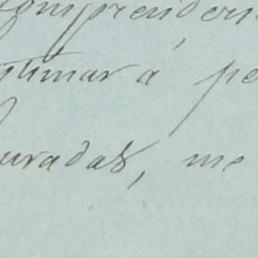 comprender
stimará pe
uradas, me